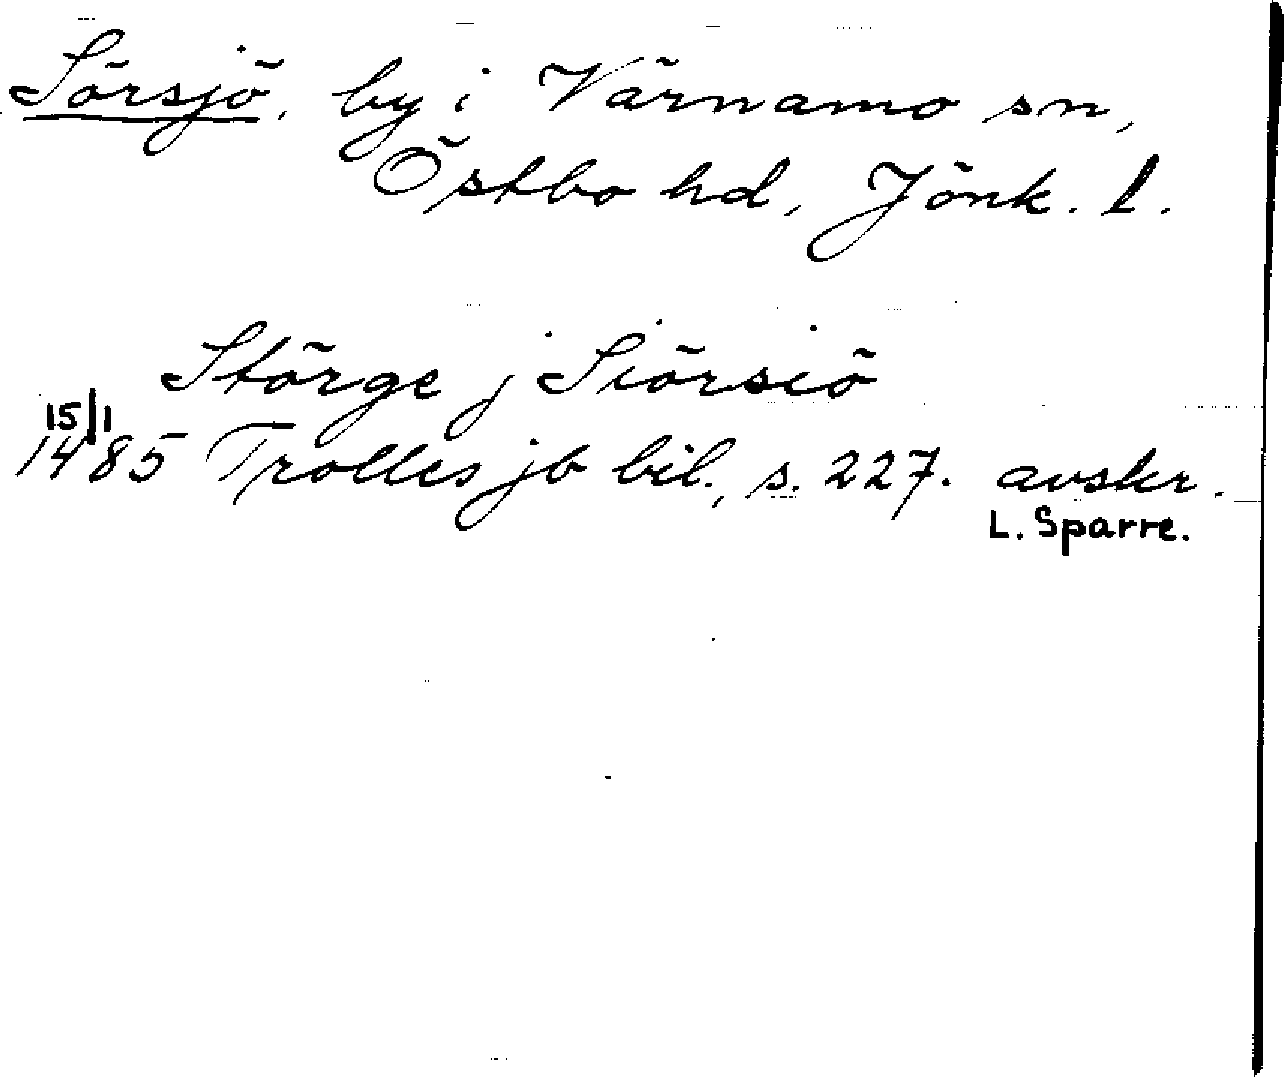 Sörsjö, by i Värnamo sn,
Östbo hd, Jönk. l.
Störge j Siörsiö
15/1
1485 Trolles jb bil., s. 227. avskr.
L. Sparre.